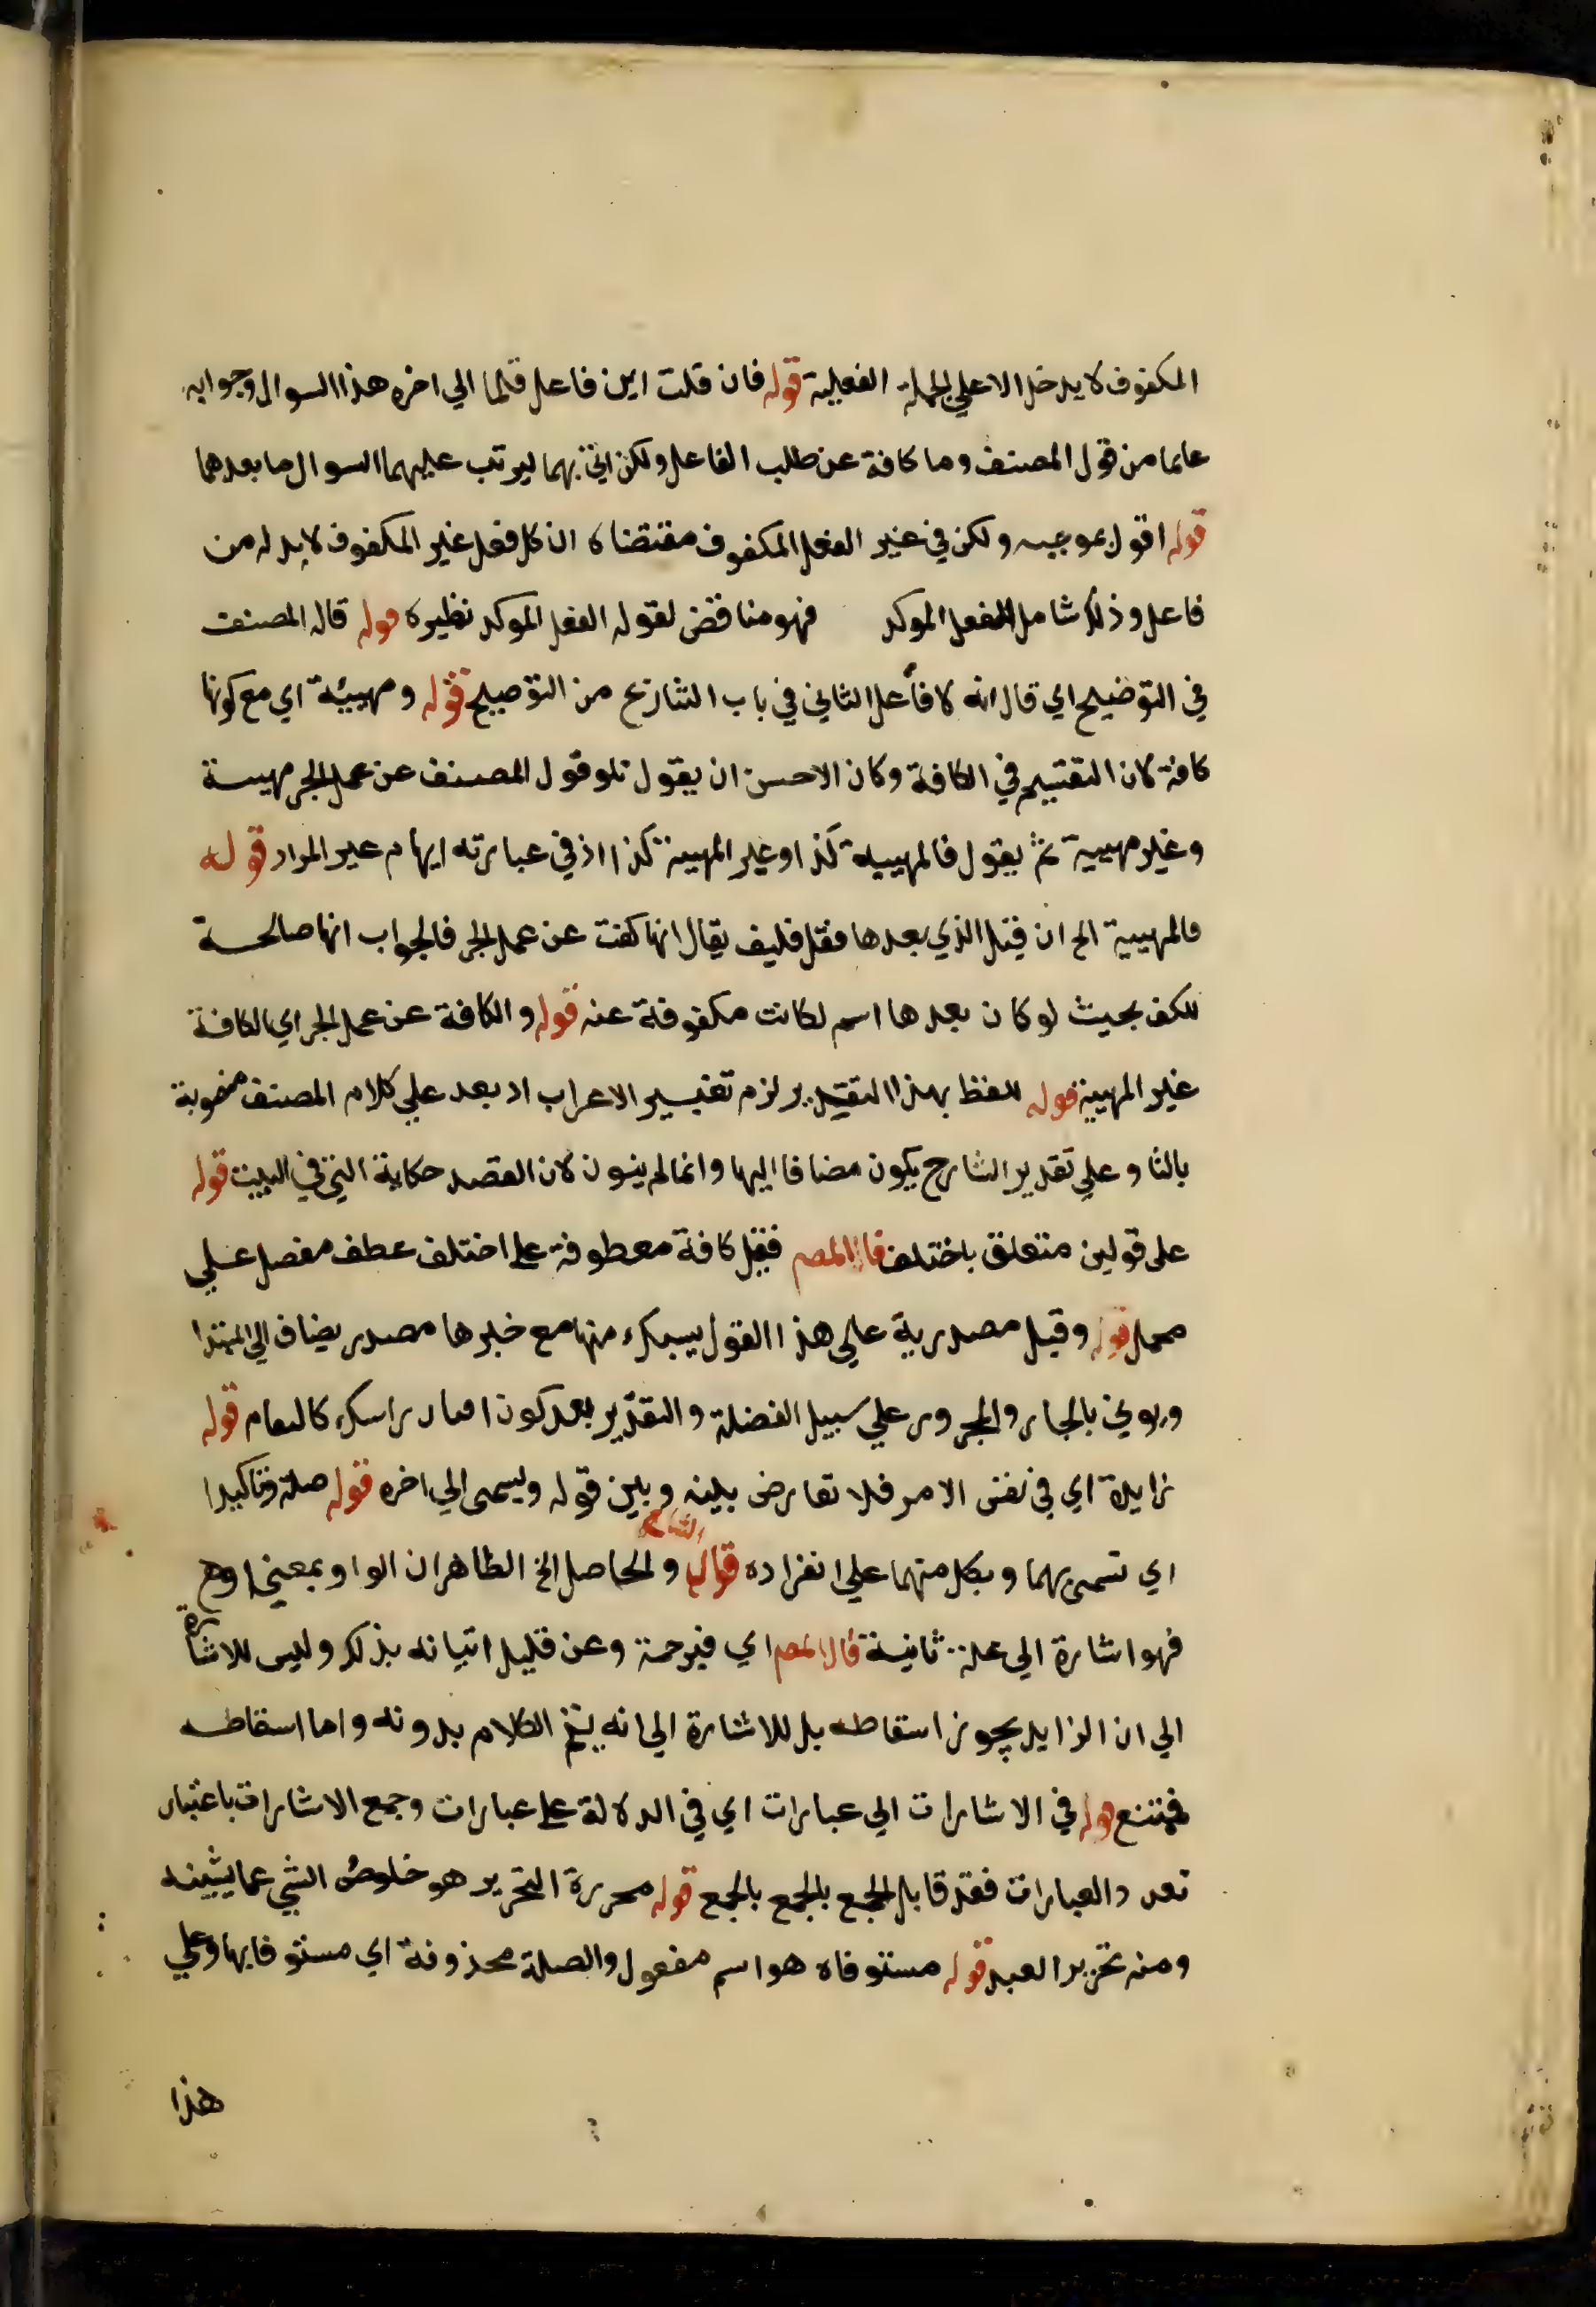 المكفوف لا يدخل الا علي الجملة الفعلية قوله فان قلت اين فاعل قلما الي اخره هذا السوال وجوابه
علما من قول المصنف وما كافة عن طلب الفاعل ولكن اتي بهما ليرتب عليهما السوال ما بعدهما
قوله اقول بموجبه ولكن في غير الفعل المكفوف مقتضاه ان كل فعل غير المكفوف لابد له من
فاعل وذلك شامل للفعل الموكد فهو مناقض لقوله الفعل الموكد نظيره قوله قاله المصنف
في التوضيح اي قال انه لا فاعل الثاني في باب التنازع من التوضيح قوله ومهيئة اي مع كونها
كافة لان التقسيم في الكافة وكان الاحسن ان يقول تلو قول المصنف عن عمل الجر مهيية
وغير مهيية ثم يقول فالمهييه كذا وغير المهيية كذا اذ في عبارته ايهام غير المراد قوله
فالمهيية الخ ان قيل الذي بعدها فعل فكيف يقال انها كفت عن عمل الجر فالجواب انها صالحة
للكف بحيث لو كان بعدها اسم لكانت مكفوفة عنه قوله والكافة عن عمل الجر اي الكافة
غير المهيية قوله لفظ بهذا التقدير لزم تغيير الاعراب اد بعد علي كلام المصنف منصوبة
بالتا وعلي تقدير الشارح يكون مضافا اليها وانما لم ينون لان القصد حكاية التي في البيت قوله
على قولين متعلق باختلف قال المص فقيل كافة معطوفة على اختلف عطف مفصل علي
مجمل قوله وقيل مصدرية علي هذا القول يسبك منها مع خبرها مصدر يضاف الي المبتدا
ويوتي بالجار والمجرور علي سبيل الفضلة والتقدير بعد كون افنان راسك كالثغام قوله
زايدة اي في نفس الامر فلا تعارض بينه وبين قوله ويسمى الي اخره قوله صلة وتاكيدا
اي تسمى بهما وبكل منهما علي انفراده قال الشارح والحاصل الخ الظاهر ان الواو بمعني او
فهو اشارة الي علة ثانية قال المص اي فبرحمة وعن قليل اتيانه بذلك وليس للاشارة
الي ان الزايد يجوز اسقاطه بل للاشارة الي انه يتم الكلام بدونه واما اسقاطه
فممتنع قوله في الاشارات الي عبارات اي في الدلالة على عبارات وجمع الاشارات باعتبار
تعدد العبارات فقد قابل الجمع بالجمع بالجمع قوله محررة التحرير هو خلوص الشي عما يشينه
ومنه تحرير العبد قوله مستوفاه هو اسم مفعول والصلة محذوفة اي مستوفا بها وعلي
هذا